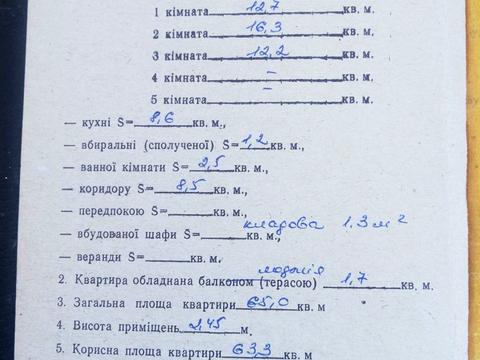 1 кімната 12,7 кв. м.
2 кімната 16,3 кв. м.
3 кімната 12,2 кв. м.
4 кімната – кв. м.
5 кімната – кв. м.
— кухні S= 8,6 кв. м.,
— вбиральні (сполученої) S= 1,2 кв. м.,
— ванної кімнати S= 2,5 кв. м.,
— коридору S= 8,5 кв. м.,
— передпокою S= кв. м.,
кладова 1.3 м²
— вбудованої шафи S= кв. м.,
— веранди S= кв. м.
лоджія
2. Квартира обладнана балконом (терасою) 1,7 кв. м.
3. Загальна площа квартири 65,0 кв. м
4. Висота приміщень 2,45 м.
5. Корисна площа квартири 63,3 кв. м